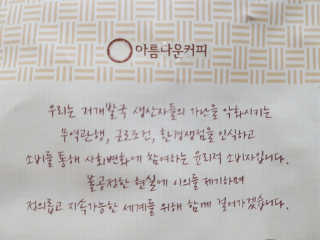 아름다운커피
우리는 저개발국 생산자들의 가난을 악화시키는
무역관행, 근로조건, 환경쟁점을 인식하고
소비를 통해 사회변화에 참여하는 윤리적 소비자입니다.
불공정한 현실에 이의를 제기하며
정의롭고 지속가능한 세계를 위해 함께 걸어가겠습니다.